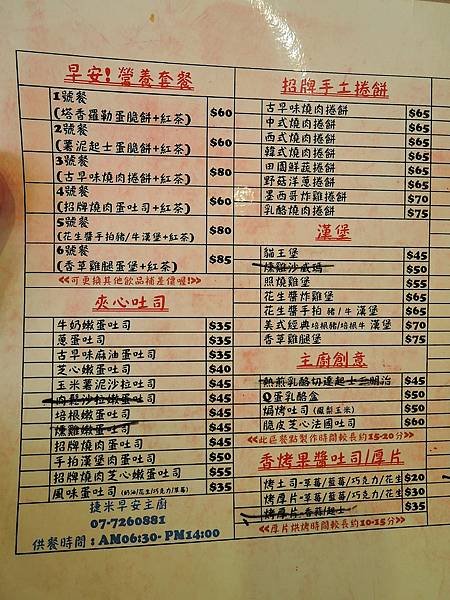 早安!營養套餐
1號餐
(塔香羅勒蛋脆餅+紅茶) $60
2號餐
(薯泥起士蛋脆餅+紅茶) $60
3號餐
(古早味燒肉捲餅+紅茶) $80
4號餐
(招牌燒肉蛋吐司+紅茶) $60
5號餐
(花生醬手拍豬/牛漢堡+紅茶) $80
6號餐
(香草雞腿蛋堡+紅茶) $85
<<可更換其他飲品補差價喔!>>
夾心吐司
牛奶嫩蛋吐司 $35
蔥蛋吐司 $35
古早味麻油蛋吐司 $35
芝心嫩蛋吐司 $40
玉米薯泥沙拉吐司 $45
肉鬆沙拉嫩蛋吐司 $45
培根嫩蛋吐司 $45
燻雞嫩蛋吐司 $45
招牌燒肉蛋吐司 $45
手拍漢堡肉蛋吐司 $50
招牌燒肉芝心嫩蛋吐司 $55
風味蛋吐司 (奶油/花生/巧克力/草莓) $35
捷米早安主廚
07-7260881
供餐時間:AM06:30-PM14:00
招牌手工捲餅
古早味燒肉捲餅 $65
中式燒肉捲餅 $65
西式燒肉捲餅 $65
韓式燒肉捲餅 $65
田園鮮蔬捲餅 $65
野菇洋蔥捲餅 $65
墨西哥炸雞捲餅 $70
乳酪燒肉捲餅 $75
漢堡
貓王堡 $45
燻雞沙威瑪 $50
照燒雞堡 $55
花生醬炸雞堡 $65
花生醬手拍 豬/牛 漢堡 $65
美式經典 培根豬/培根牛 漢堡 $70
香草雞腿堡 $75
主廚創意
熱煎乳酪切達起士三明治 $45
Q蛋乳酪盒 $50
焗烤吐司 (鳳梨玉米) $50
脆皮芝心法國吐司 $60
<<此區餐點製作時間較長約15-20分>>
香烤果醬吐司/厚片
烤土司-草莓/藍莓/巧克力/花生 $20
烤厚片-草莓/藍莓/巧克力/花生 $30
烤厚片-香蒜/起士 $35
<<厚片烘烤時間較長約10-15分>>